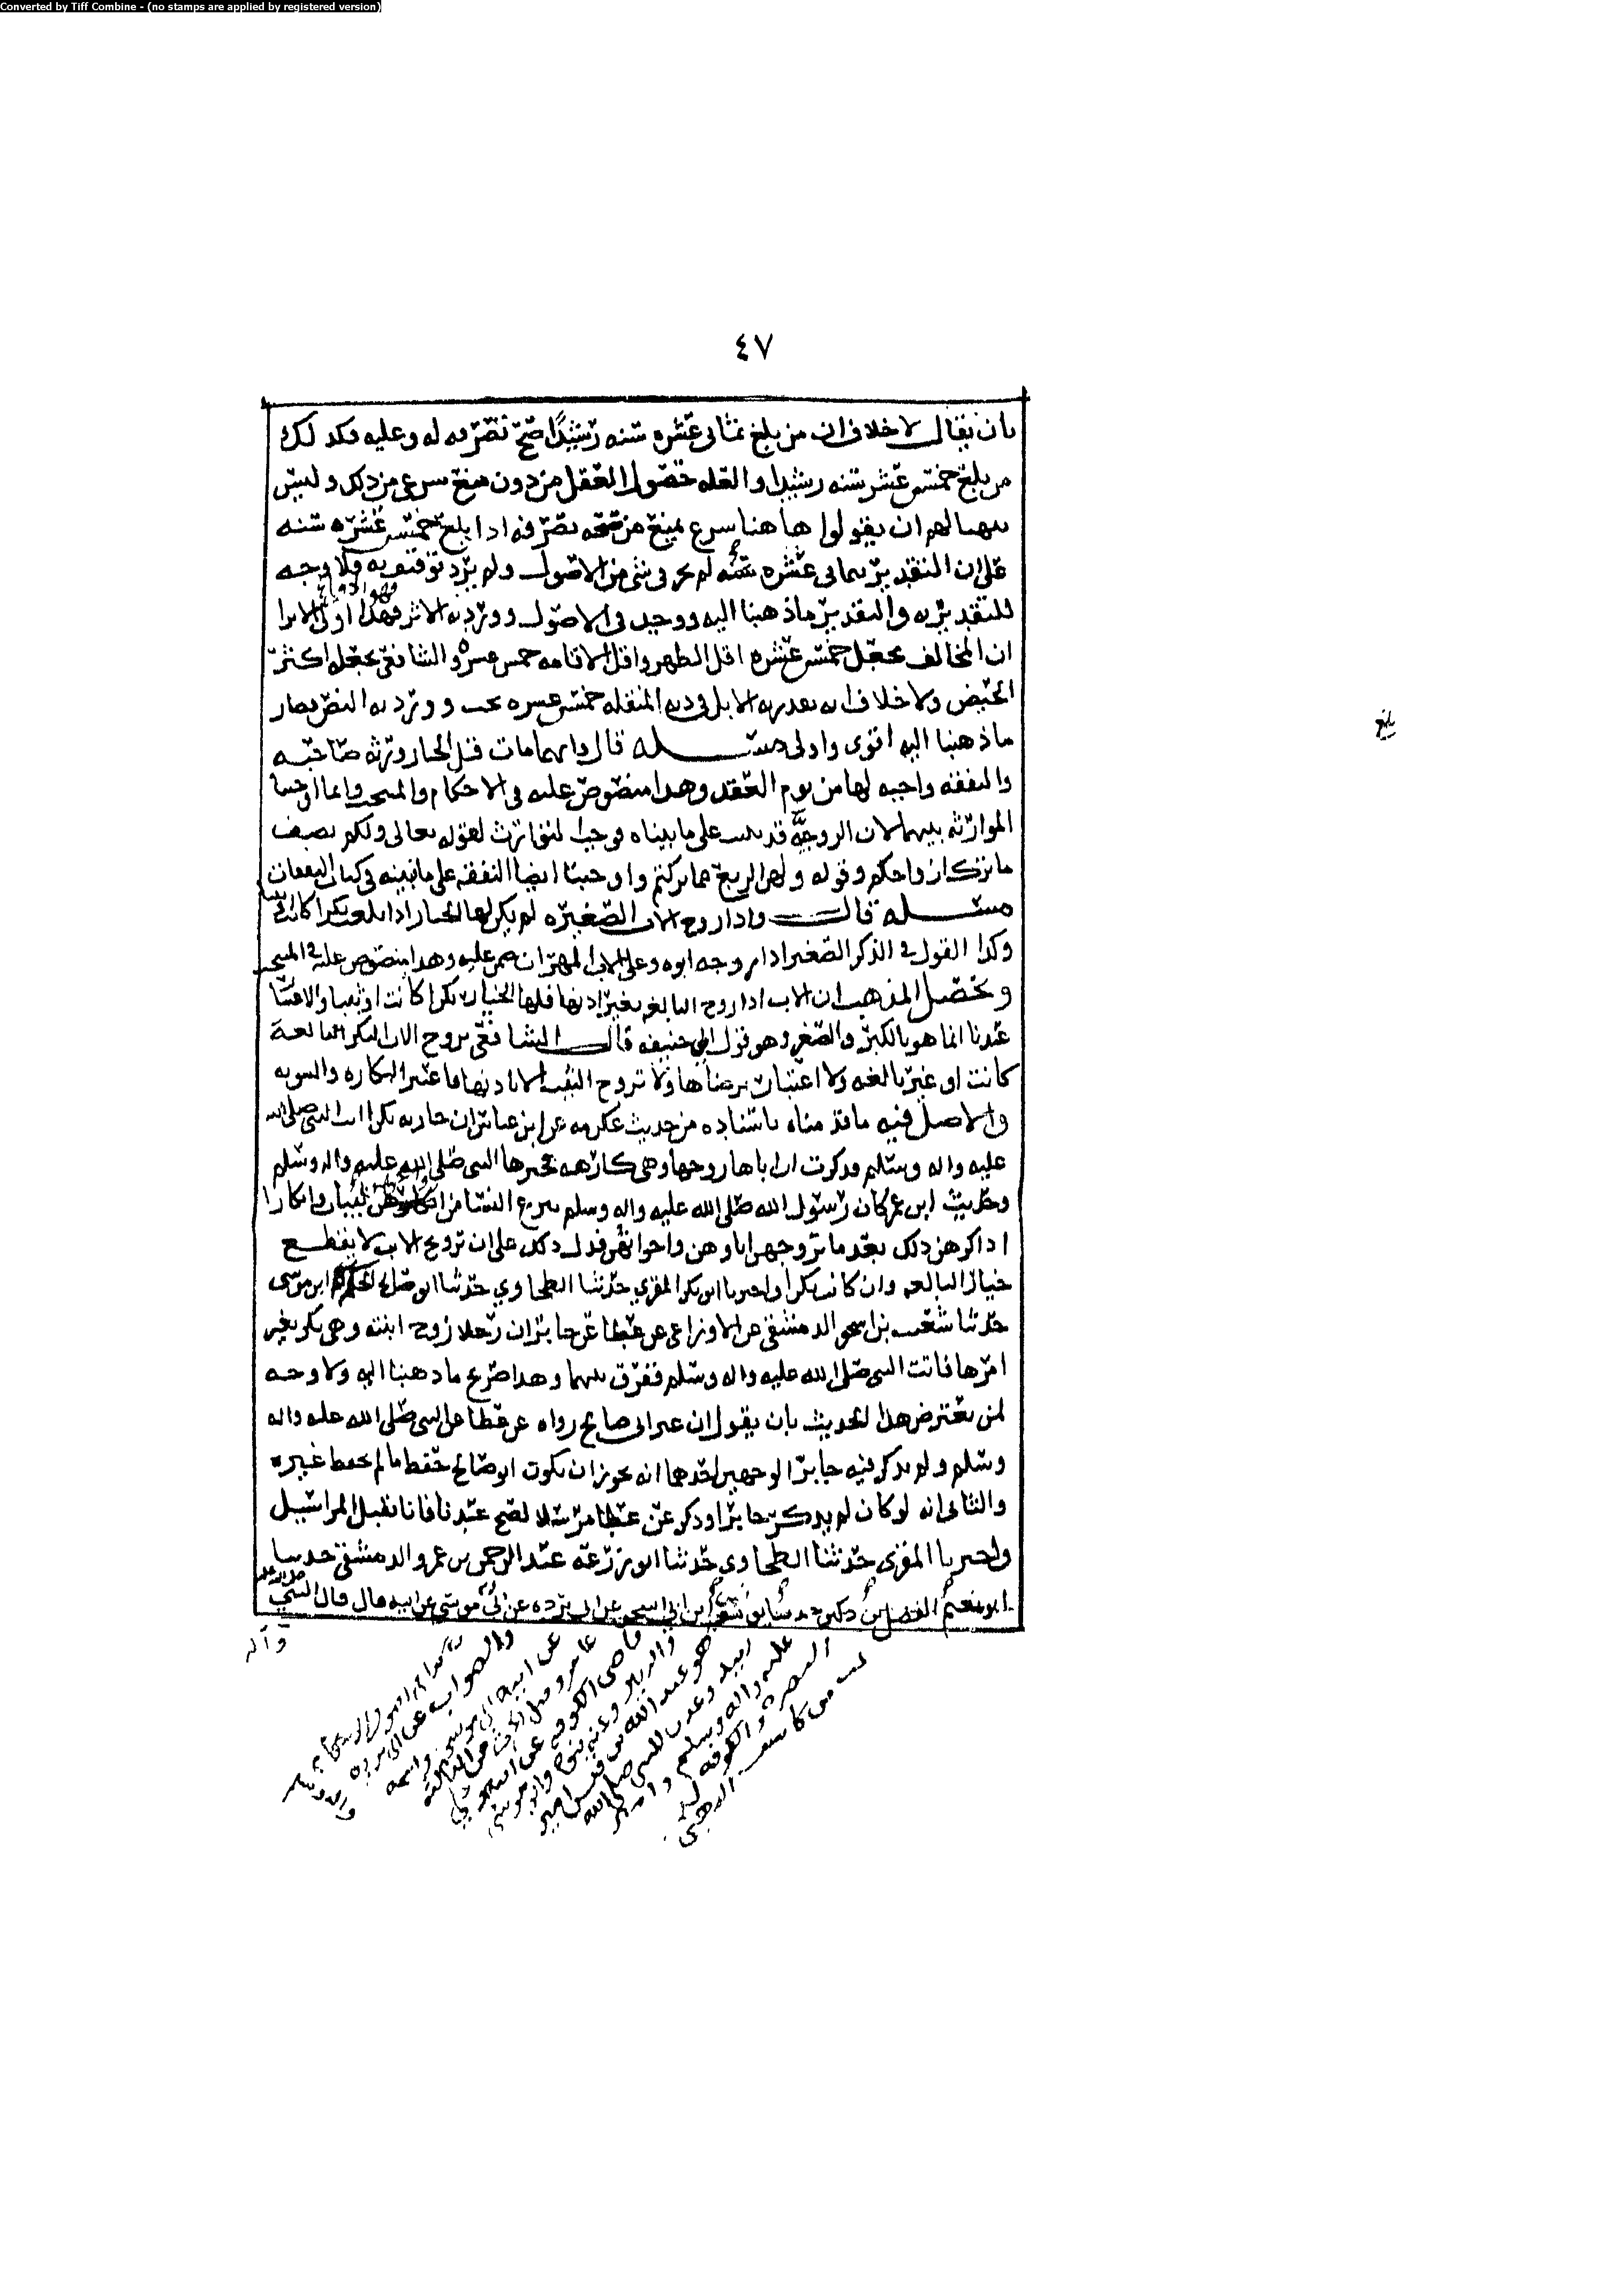 Converted by Tiff Combine - (no stamps are applied by registered version)
٤٧
بان يقال لا خلاف ان من بلغ ثماني عشره سنه رشيدًا صح تصرفه له وعليه فكذلك
من بلغ خمس عشر سنه رشيدا والعله حصول العقل من دون منع شرعي من ذلك وليس
لهم ان يقولوا هاهنا شرع يمنع من صحه تصرفه اذا بلغ خمس عشره سنه
على ان التقدير بثماني عشره سنه لم يجر في شي من الاصول ولم يرد توقيف به فلا وجه
للتقدير به والتقدير بما ذهبنا اليه ووجد في الاصول وورد به الاثر فهذا اولى الا ترا
ان المخالف يجعل خمس عشره اقل الطهر واقل الاقامه خمس عشره والشافعي يجعله اكثر
الحيض ولا خلاف انه الابل في ديه المنقله خمس عشره وورد به النص فصار
ما ذهبنا اليه اقوى واولى مسئله قال وايهما مات قبل الخيار ورثه صاحبه
والنفقه واجبه لها من يوم العقد وهذا منصوص عليه في الاحكام والمنتخب وانما اوجبنا
الموارثه بينهما لان الزوجيه قد على ما بيناه فوجب التوارث لقوله تعالى ولكم نصف
ما ترك ازواجكم وقوله ولهن الربع مما تركتم واوجبنا ايضا النفقه على ما نبينه في كتاب النفقات
مسئله قال واذا زوج الاب الصغيره لم يكن لها الخيار اذا بلغت بكرا كانت او ثيبا
وكذا القول في الذكر الصغير اذا زوجه ابوه وعلى الاب المهر ان ضمن عليه وهذا منصوص عليه في المنتخب
وتحصيل المذهب ان الاب اذا زوج البالغه بغير اذنها فلها الخيار بكرا كانت او ثيبا والاعتبار
عندنا انما هو بالكبر والصغر وهو قول ابي حنيفه قال الشافعي يزوج الاب البكر البالغه
كانت او غير بالغه ولا اعتبار برضاها ولا تزوج الثيب الا باذنها فاعتبر البكاره والثيوبه
والاصل فيه ما قدمناه باسناده من حديث عكرمه عن ابن عباس ان جاريه بكرا اتت النبي صلى الله
عليه واله وسلم فذكرت ان اباها زوجها وهي كارهه فخيرها النبي صلى الله عليه واله وسلم
وحديث ابن عمر كان رسول الله صلى الله عليه واله وسلم ينزع النسا من ازواجهن ثيبات وابكارا
اذا كرهن ذلك بعد ما تزوجهن اباوهن واخوانهن فدل ذلك على ان تزويج الاب لا يقطع
خيار البالغه وان كانت بكرا واخبرنا ابو بكر المقري حدثنا الطحاوي حدثنا ابو صالح الحكم ابن موسى
حدثنا شعيب بن اسحق الدمشقي عن الاوزاعي عن عطا عن جابر ان رجلا زوج ابنته وهي بكر بغير
امرها فاتت النبي صلى الله عليه واله وسلم ففرق بينهما وهذا صرح ما ذهبنا اليه ولا وجه
لمن يعترض هذا الحديث بان يقول ان غير ابي صالح رواه عن عطا عن النبي صلى الله عليه واله
وسلم ولم يذكر فيه جابرا لوجهين احدهما انه يجوز ان يكون ابو صالح حفظ ما لم يحفظ غيره
والثاني انه لو كان لم يذكر جابرا وذكر عن عطا مرسلا لصح عندنا فانا نقبل المراسيل
واخبرنا المقري حدثنا الطحاوي حدثنا ابو زرعه عبد الرحمن بن عمرو الدمشقي حدثنا
ابو نعيم الفضل بن دكين حدثنا يونس بن ابي اسحق عن ابي برده عن ابي موسى عن ابيه قال قال النبي صلى الله عليه
وآله
بلغ
والصواب عن ابي برده
عن ابيه ابي موسى واسمه
عامر وقيل
قاضي الكوفه
هو عبد الله بن قيس امير
زبيد وعدن للنبي صلى الله
عليه واله وسلم وامير
البصره والكوفه
من كاشف الذهبي